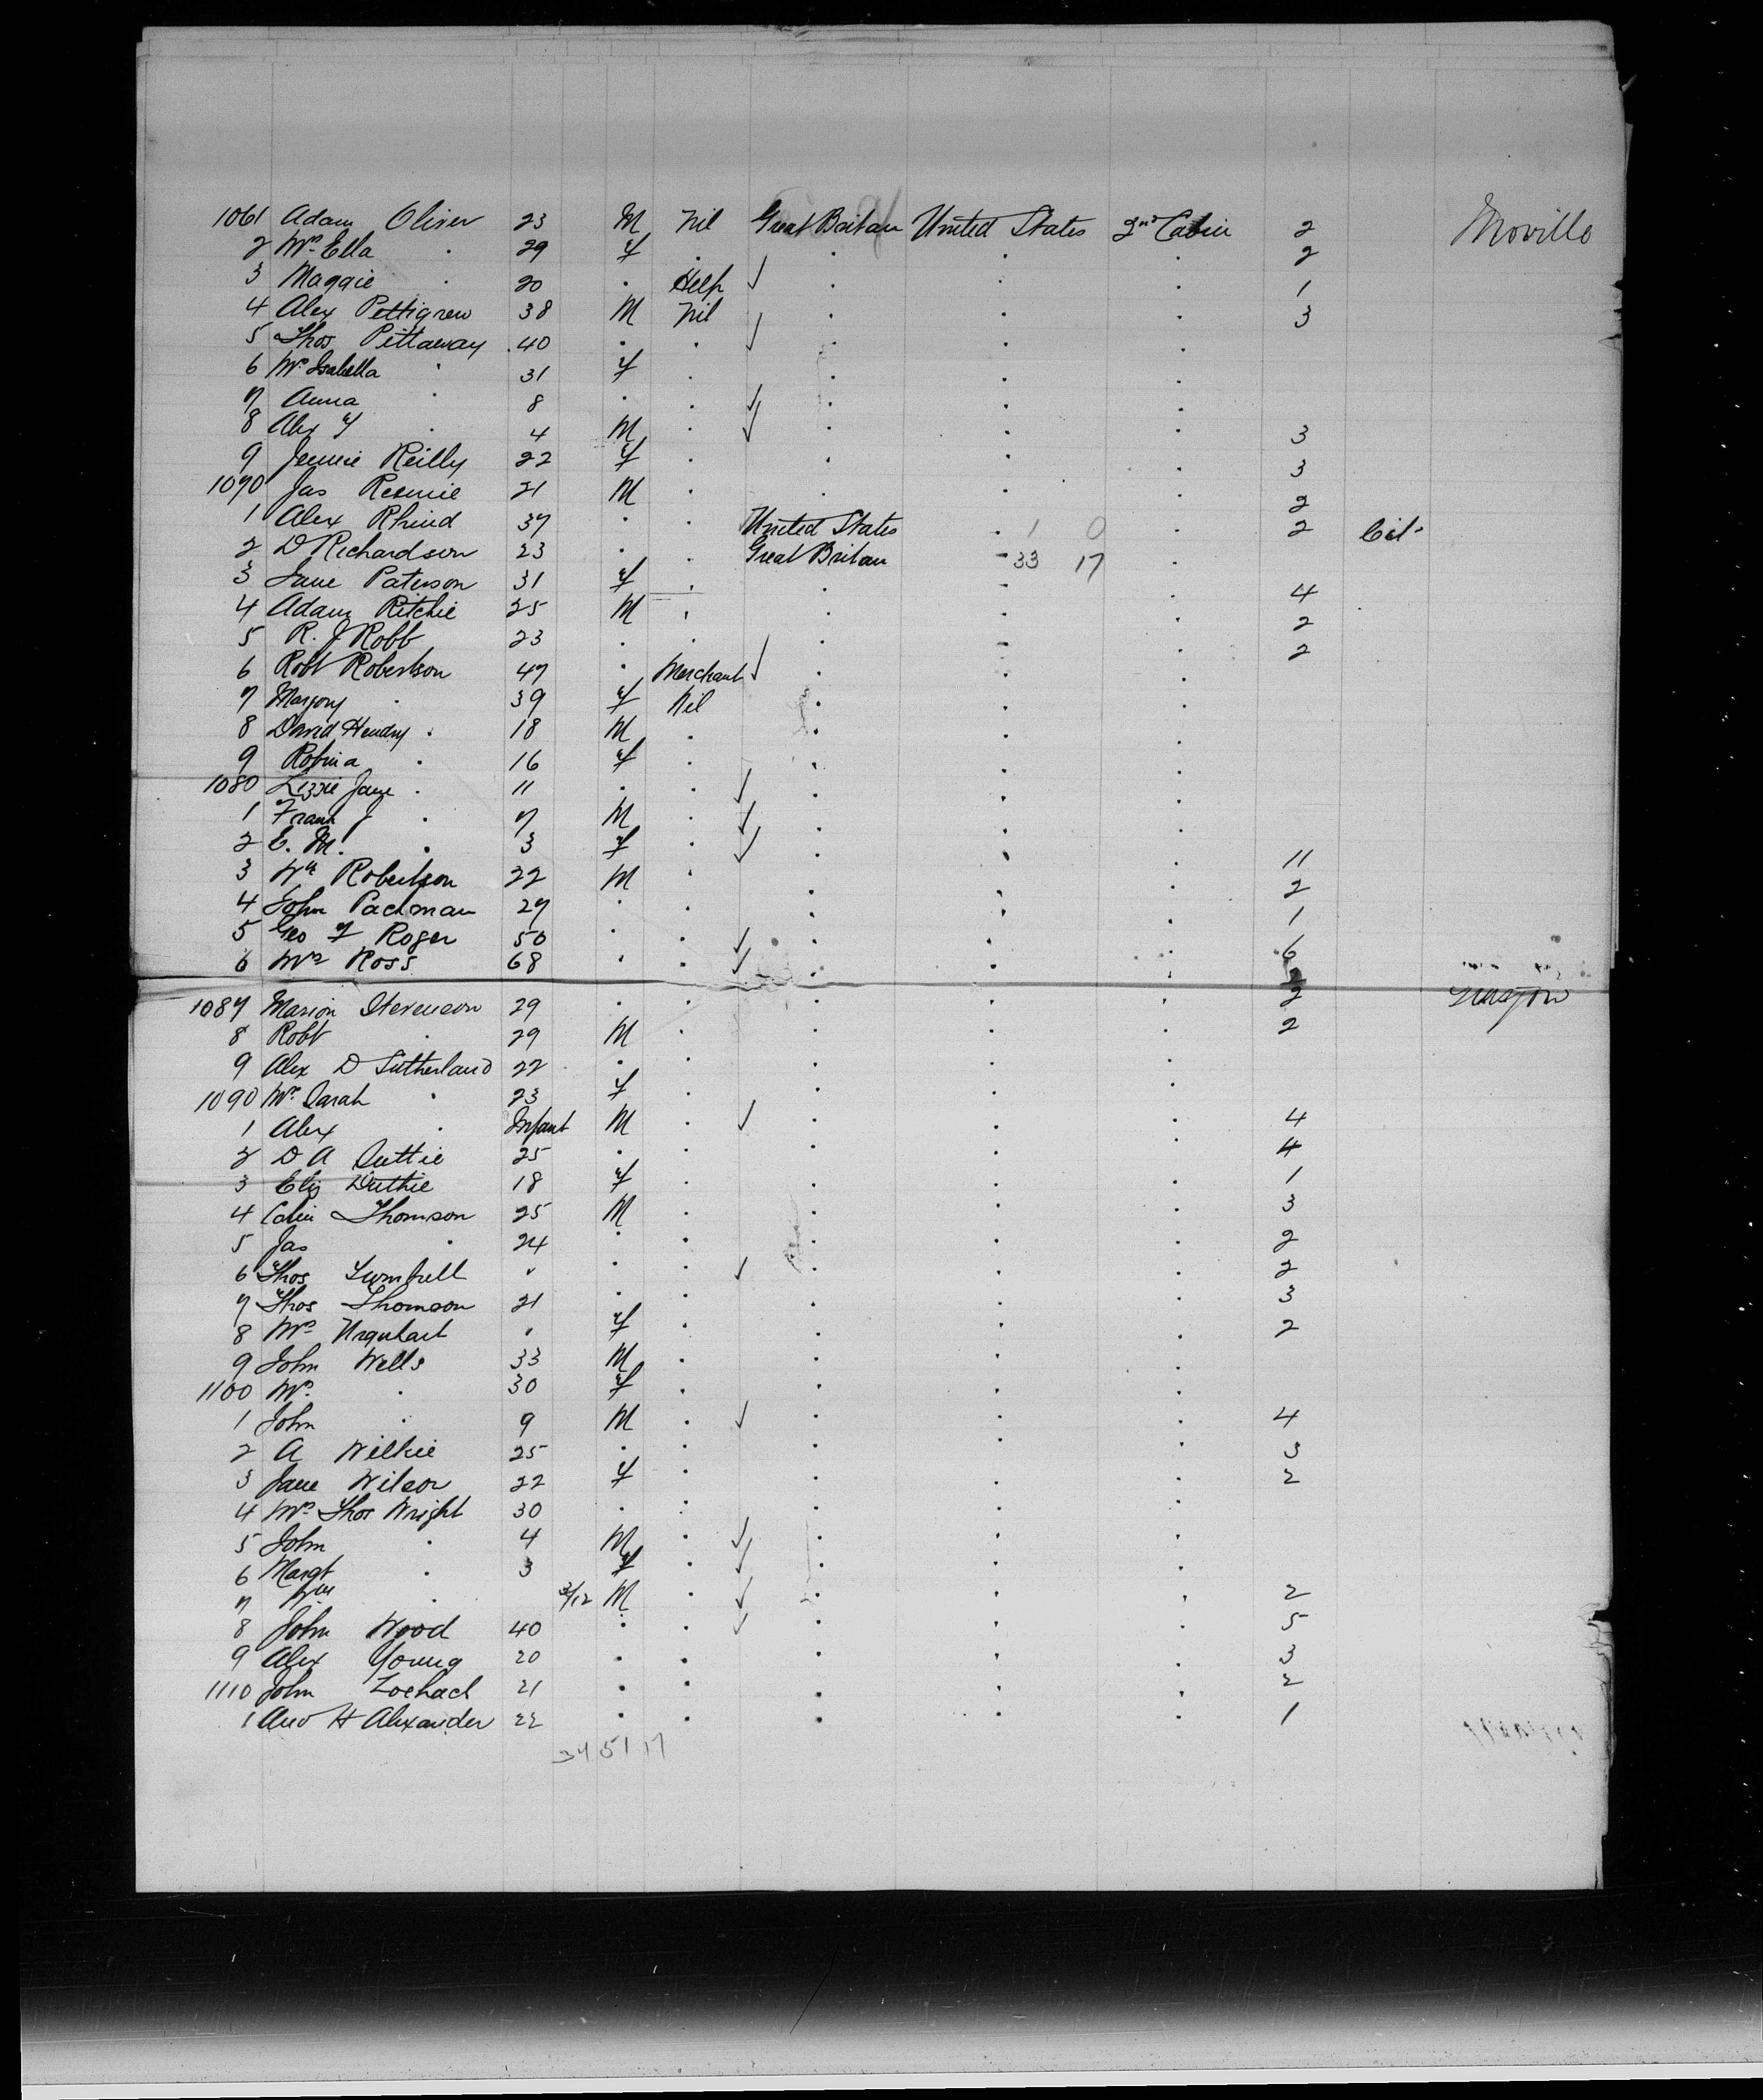 1061 Adam Oliver 23 M Nil Great Britain United States 2nd Cabin 2 Moville
2 Mrs Ella . 29 f . . . . 2
3 Maggie . 20 . Help ✓ . . . 1
4 Alex Pettigrew 38 M Nil . . . 3
5 Thos Pittaway 40 . . ✓ . . .
6 Mrs Isabella . 31 f . . . .
7 Anna . 8 . . ✓ . . .
8 Alex f . 4 M . ✓ . . . 3
9 Jennie Reilly 22 f . . . . 3
1070 Jas Rennie 21 M . . . . 2
1 Alex Rhind 37 . . United States . 1 0 . 2 Cit.
2 D Richardson 23 . . Great Britain . 33 17 .
3 Jane Paterson 31 f . . . . 4
4 Adam Ritchie 25 M . . . . 2
5 R. J Robb 23 . . . . . 2
6 Robt Robertson 47 . Merchant ✓ . . .
7 Marjory . 39 f Nil . . .
8 David Hendry . 18 M . . . .
9 Robina . 16 f . . . .
1080 Lizzie Jane . 11 . . ✓ . . .
1 Frank J . 7 M . ✓ . . .
2 E. M. . 3 f . ✓ . . . 11
3 Wm Robertson 22 M . . . . 2
4 John Packman 27 . . . . . 1
5 Geo f Roger 50 . . ✓ . . . 6
6 Mrs Ross 68 . . ✓ . . .
1087 Marion Stevenson 29 . . . . . 2
8 Robt . 29 M . . . . 2
9 Alex D Sutherland 22 . . . . .
1090 Mrs Sarah . 23 f . . . .
1 Alex . Infant M . ✓ . . . 4
2 D A Suttie 25 . . . . . 4
3 Eliz Duthie 18 f . . . . 1
4 Colin Thomson 25 M . . . . 3
5 Jas . 24 . . . . . 2
6 Thos . . . ✓ . . . 2
7 Thos Thomson 21 . . . . . 3
8 Mrs Urquhart . f . . . . 2
9 John Wells 33 M . . . .
1100 Mrs . 30 f . . . .
1 John . 9 M . ✓ . . . 4
2 A Wilkie 25 . . . . . 3
3 Jane Wilson 22 f . . . . 2
4 Mrs Thos Wright 30 . . . . .
5 John . 4 M . ✓ . . .
6 Margt . 3 f . ✓ . . .
7 Wm . 3/12 M . ✓ . . . 2
8 John Wood 40 . . ✓ . . . 5
9 Alex Young 20 . . . . . 3
1110 John 21 . . . . . 2
1 And H Alexander 22 . . . . . 1
34 51 17